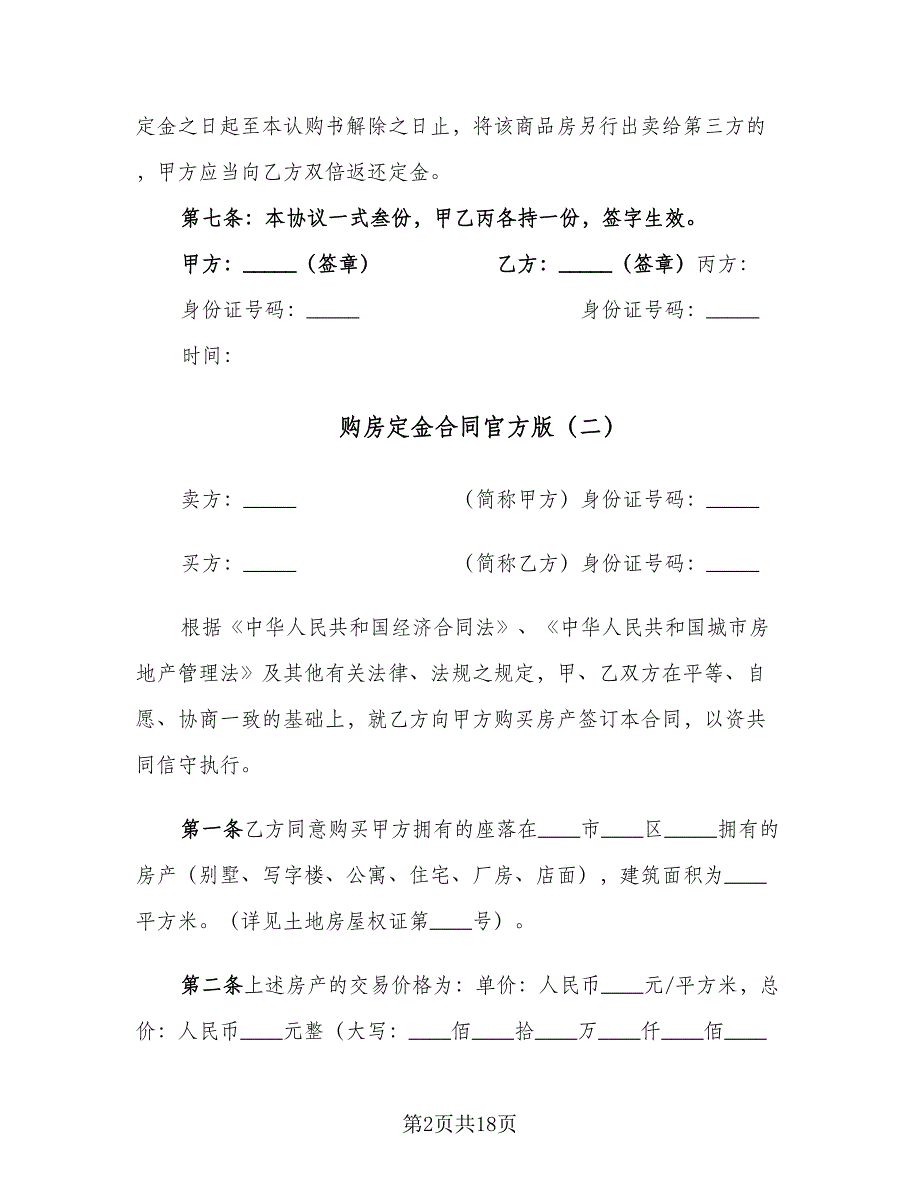 定金之日起至本认购书解除之日止，将该商品房另行出卖给第三方的
，甲方应当向乙方双倍返还定金。
第七条：本协议一式叁份，甲乙丙各持一份，签字生效。
甲方：_____（签章） 乙方：_____（签章）丙方：
身份证号码：_____ 身份证号码：_____
时间：
购房定金合同官方版（二）
卖方：_____ （简称甲方）身份证号码：_____
买方：_____ （简称乙方）身份证号码：_____
根据《中华人民共和国经济合同法》、《中华人民共和国城市房
地产管理法》及其他有关法律、法规之规定，甲、乙双方在平等、自
愿、协商一致的基础上，就乙方向甲方购买房产签订本合同，以资共
同信守执行。
第一条乙方同意购买甲方拥有的座落在____市____区_____拥有的
房产（别墅、写字楼、公寓、住宅、厂房、店面），建筑面积为____
平方米。（详见土地房屋权证第____号）。
第二条上述房产的交易价格为：单价：人民币____元/平方米，总
价：人民币____元整（大写：____佰____拾____万____仟____佰____
第2页共18页